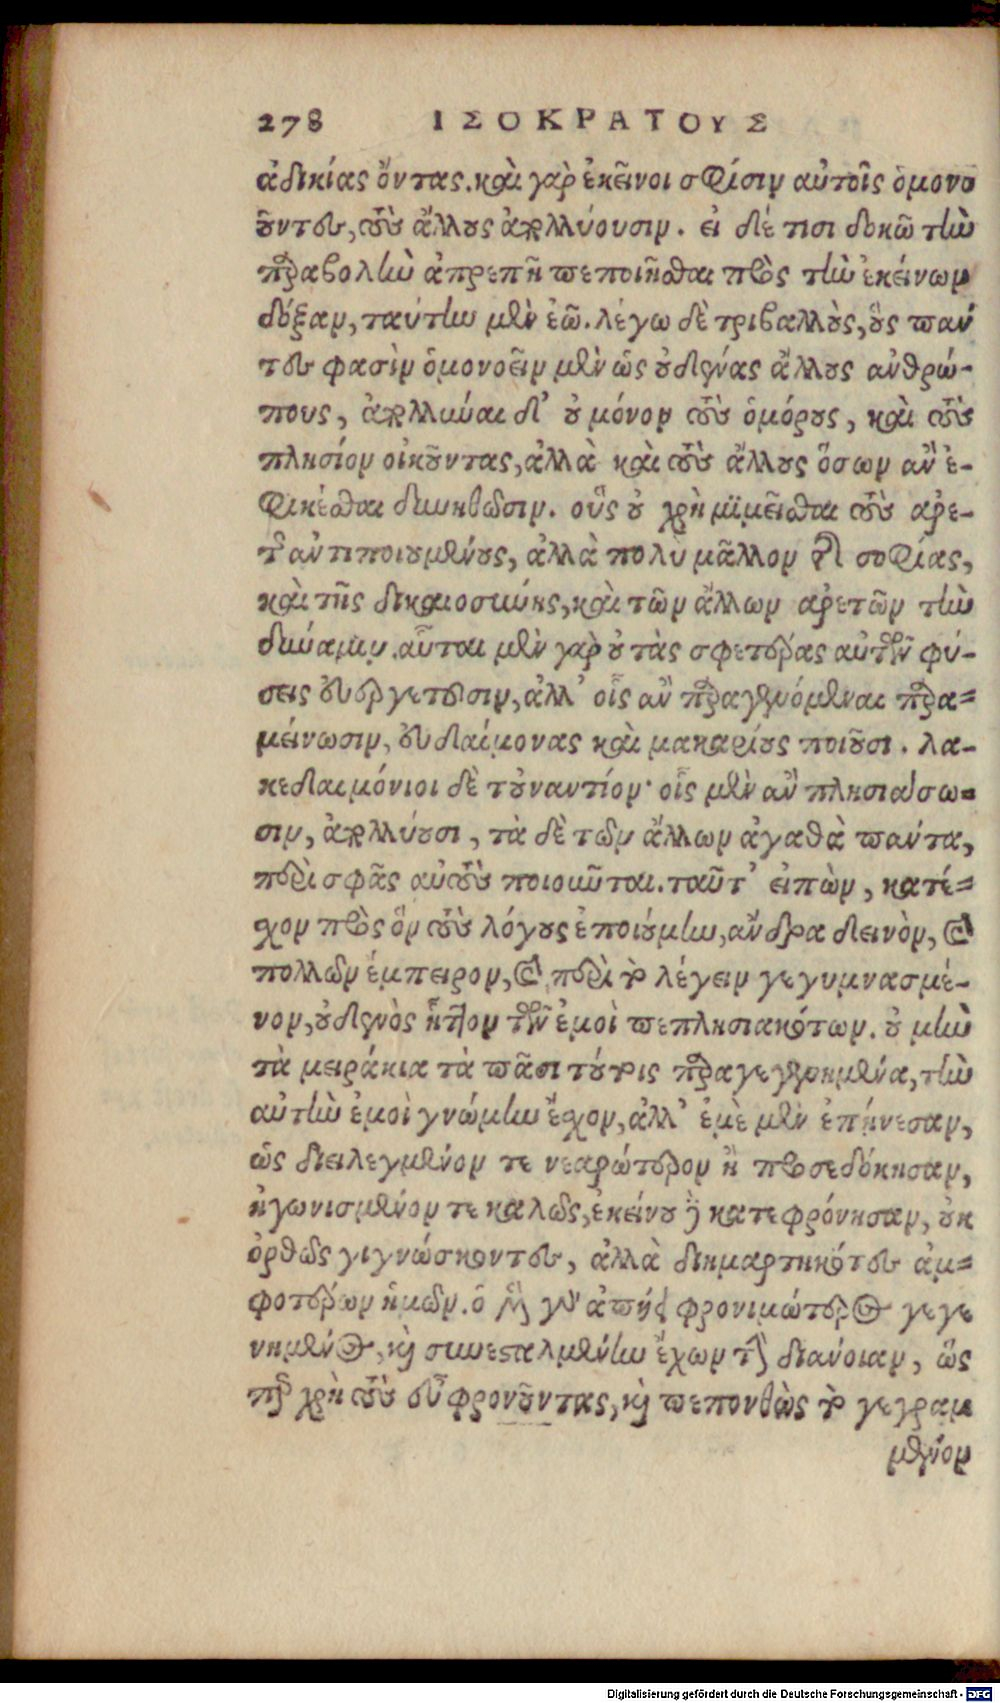 278 ΙΣΟΚΡΑΤΟΥΣ
ἀδικίας ὄντας. καὶ γὰρ ἐκεῖνοι σφίσιν αὐτοῖς ὁμονο
οῦντες, τοὺς ἄλλους ἀπολλύουσιν. εἰ δέ τισι δοκῶ τὴν
παραβολὴν ἀπρεπῆ πεποιῆσθαι πρὸς τὴν ἐκείνων
δόξαν, ταύτην μὲν ἐῶ. λέγω δὲ τριβαλλοὺς, οὓς παν
τες φασὶν ὁμονοεῖν μὲν ὡς οὐδένας ἄλλους ἀνθρώ-
πους, ἀπολλύναι δ' οὐ μόνον τοὺς ὁμόρους, καὶ τοὺς
πλησίον οἰκοῦντας, ἀλλὰ καὶ τοὺς ἄλλους ὅσων ἂν ἐ-
φικέσθαι δυνηθῶσιν. οὓς οὐ χρὴ μιμεῖσθαι τοὺς ἀρε-
τῆς ἀντιποιουμένους, ἀλλὰ πολὺ μᾶλλον τὴν σοφίας,
καὶ τῆς δικαιοσύνης, καὶ τῶν ἄλλων ἀρετῶν τὴν
δύναμιν. αὗται μὲν γὰρ οὐ τὰς σφετέρας αὐτῶν φύ-
σεις εὐεργετοῦσιν, ἀλλ' οἷς ἂν παραγενόμεναι παρα-
μείνωσιν, εὐδαίμονας καὶ μακαρίους ποιοῦσι. λα-
κεδαιμόνιοι δὲ τοὐναντίον· οἷς μὲν ἂν πλησιάσω-
σιν, ἀπολλύουσι, τὰ δὲ τῶν ἄλλων ἀγαθὰ πάντα,
περὶ σφᾶς αὐτοὺς ποιοῦνται. ταῦτ' εἰπὼν, κατέ-
χον πρὸς ὃν τοὺς λόγους ἐποιούμην, ἄνδρα δεινὸν, καὶ
πολλῶν ἔμπειρον, καὶ περὶ τὸ λέγειν γεγυμνασμέ-
νον, οὐδενὸς ἧττον τῶν ἐμοὶ πεπλησιακότων. οὐ μὴν
τὰ μειράκια τὰ πᾶσι τούτοις παραγεγενημένα, τὴν
αὐτὴν ἐμοὶ γνώμην ἔχον, ἀλλ' ἐμὲ μὲν ἐπήνεσαν,
ὡς διειλεγμένον τε νεαρώτερον ἢ προσεδόκησαν,
ἠγωνισμένον τε καλῶς, ἐκείνου δὲ κατεφρόνησαν, οὐκ
ὀρθῶς γιγνώσκοντες, ἀλλὰ διημαρτηκότες ἀμ-
φοτέρων ἡμῶν. ὁ μὲν γὰρ ἀπῄει φρονιμώτερος γεγε
νημένος, καὶ συνεσταλμένην ἔχων τὴν διάνοιαν, ὥς
περ χρὴ τοὺς εὖ φρονοῦντας, καὶ πεπονθὼς τὸ γεγραμ
μένον
Digitalisierung gefördert durch die Deutsche Forschungsgemeinschaft - DFG